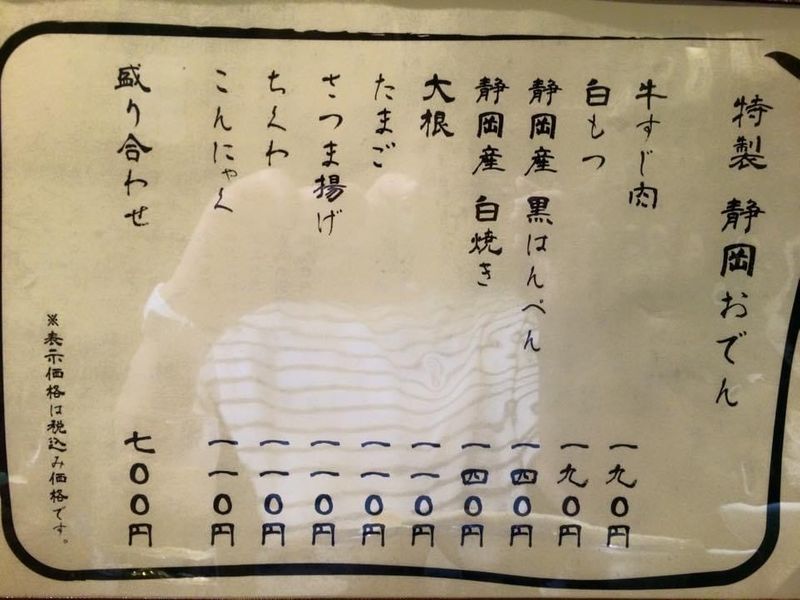 特製 静岡おでん
牛すじ肉 一九〇円
白もつ 一九〇円
静岡産 黒はんぺん 一四〇円
静岡産 白焼き 一四〇円
大根 一一〇円
たまご 一一〇円
さつま揚げ 一一〇円
ちくわ 一一〇円
こんにゃく 一一〇円
盛り合わせ 七〇〇円
※表示価格は税込み価格です。